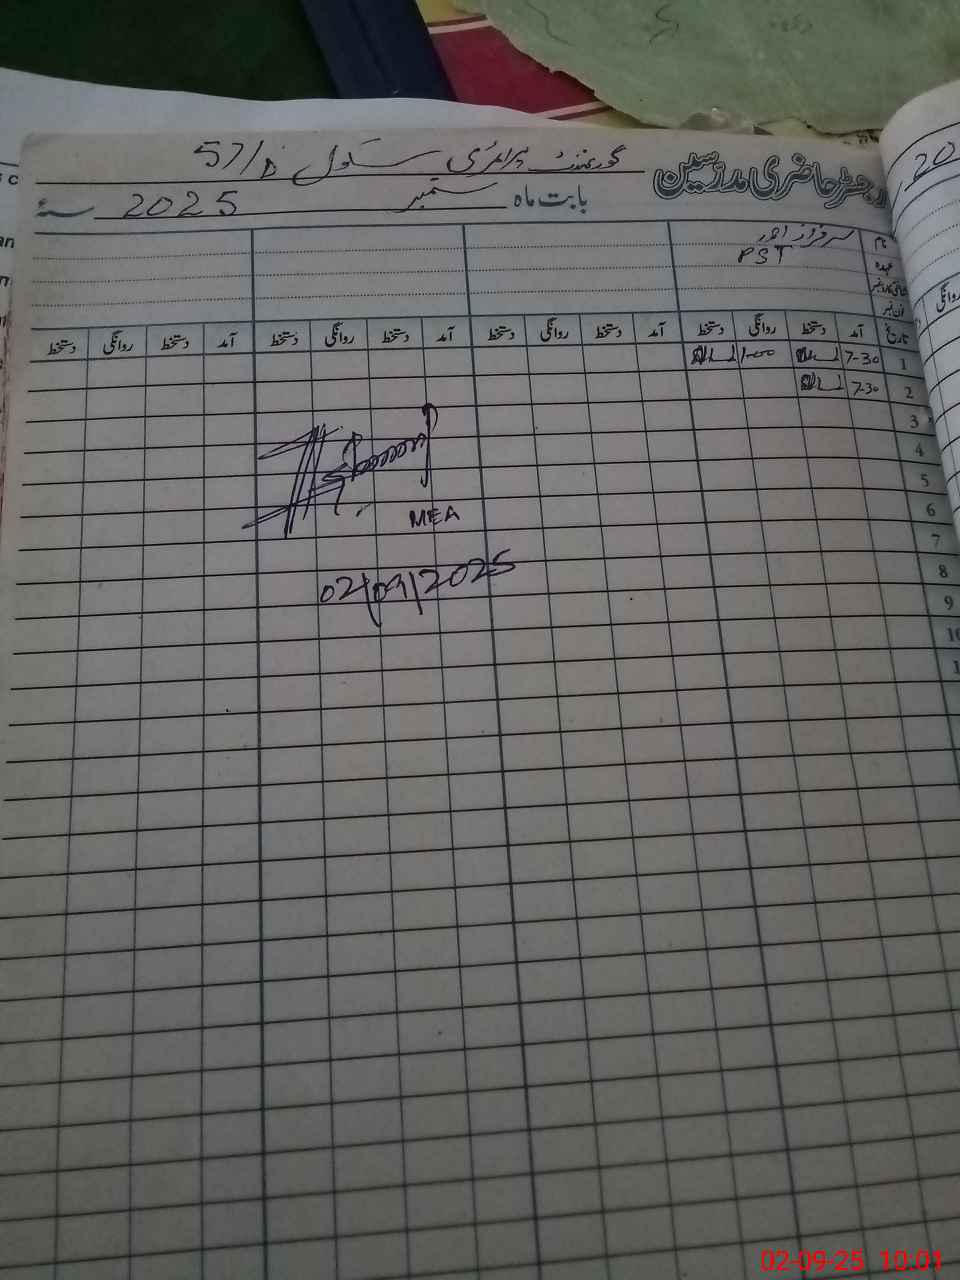 رجسٹر حاضری مدرسین گورنمنٹ پرائمری سکول 57/D
بابت ماہ ستمبر 2025 سنہ
نام سرفراز احمد
عہدہ PST
شناختی کارڈ نمبر
فون نمبر
تاریخ آمد دستخط روانگی دستخط آمد دستخط روانگی دستخط آمد دستخط روانگی دستخط آمد دستخط روانگی دستخط
1 7-30 1-00
2 7-30
3
4
5
6
7
8
9
10
MEA
02/09/2025
20
02-09-25 10:01